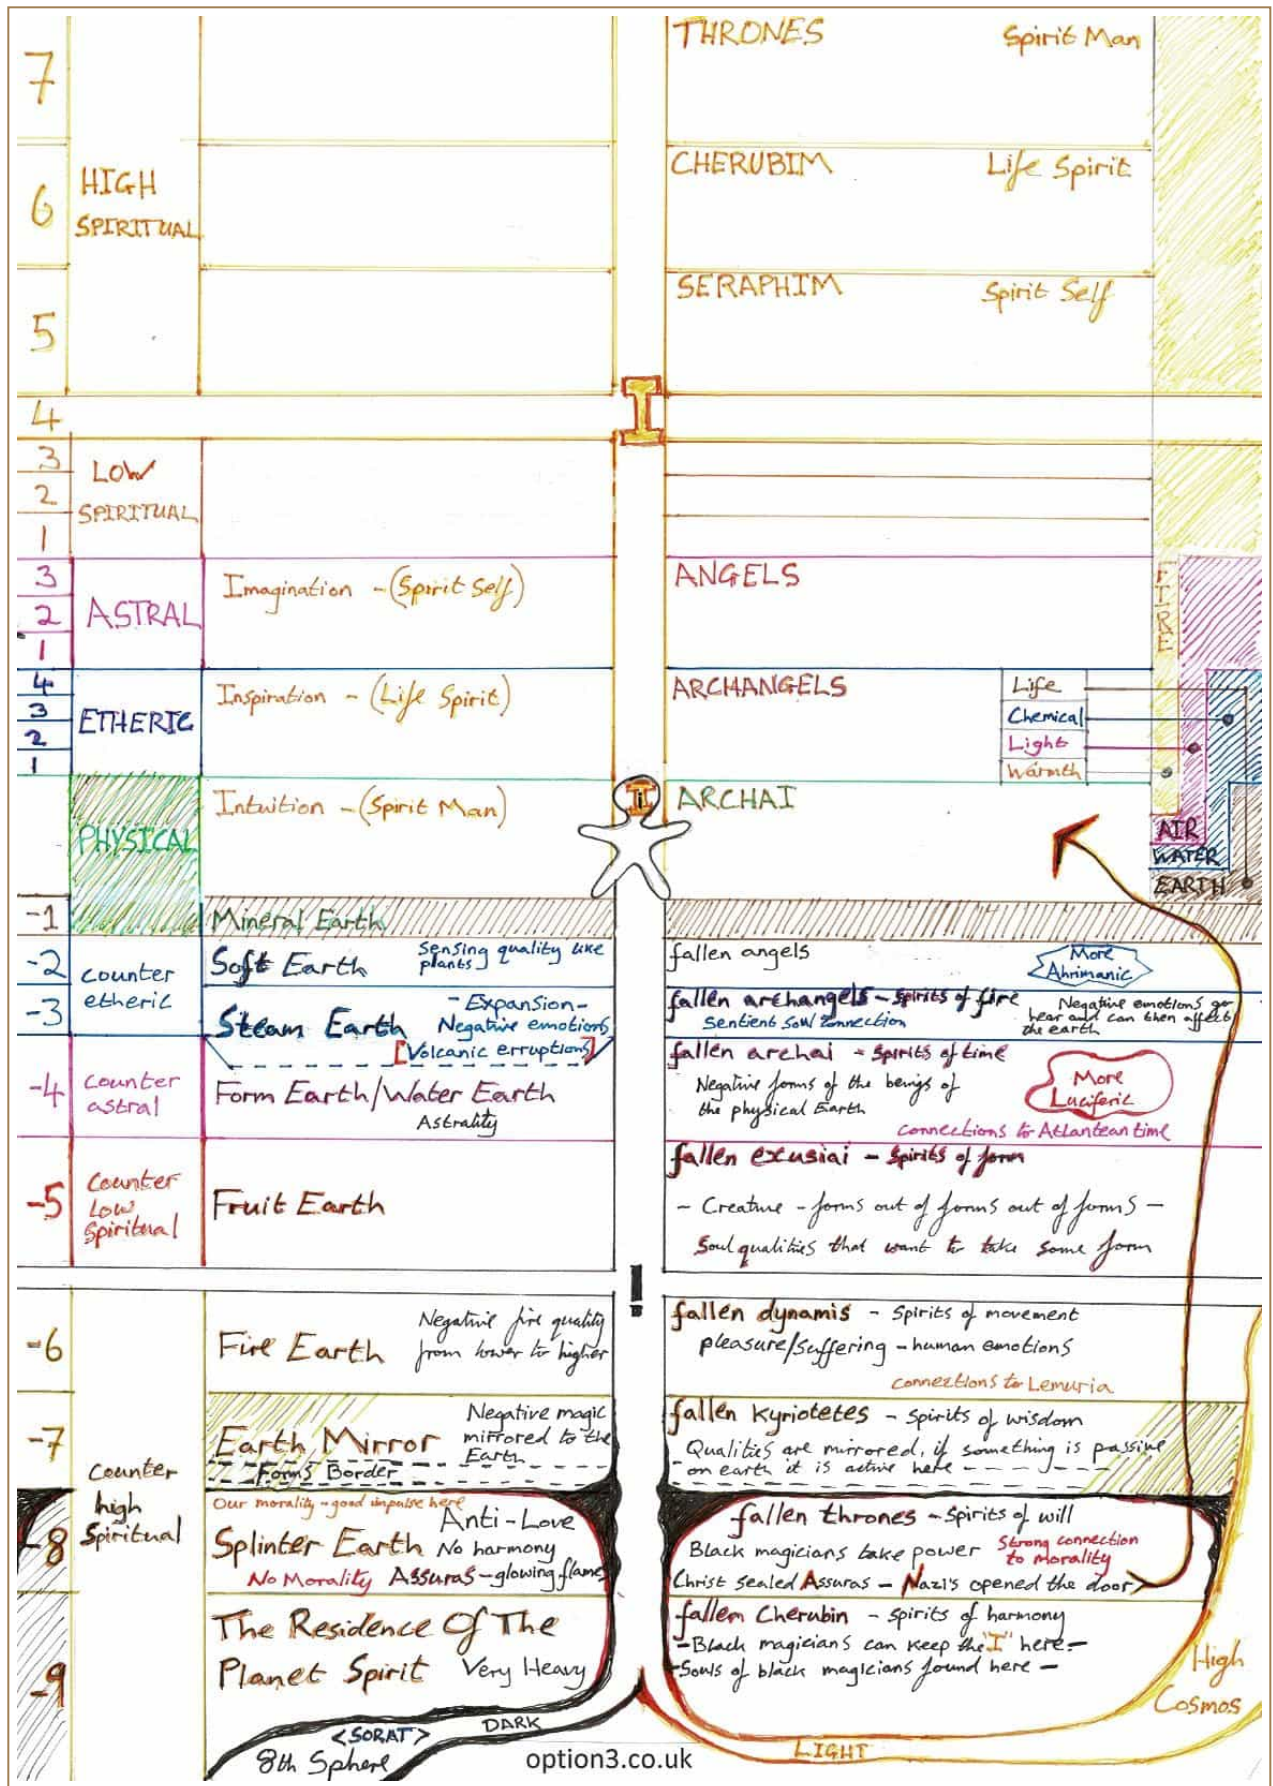 7
THRONES Spirit Man
6
HIGH
SPIRITUAL
CHERUBIM Life Spirit
5
SERAPHIM Spirit Self
4
I
3
2
1
LOW
SPIRITUAL
3
2
1
ASTRAL
Imagination - (Spirit Self)
ANGELS
FIRE
4
3
2
1
ETHERIC
Inspiration - (Life Spirit)
ARCHANGELS
Life
Chemical
Light
Warmth
PHYSICAL
Intuition - (Spirit Man)
ARCHAI
AIR
WATER
EARTH
-1
Mineral Earth
-2
counter
etheric
Soft Earth
Sensing quality like
plants
fallen angels
More
Ahrimanic
-3
Steam Earth
- Expansion -
Negative emotions
[Volcanic erruptions]
fallen archangels - Spirits of fire
Sentient soul connection
Negative emotions go
hear and can then affect
the earth
-4
Counter
astral
Form Earth/Water Earth
Astrality
fallen archai - Spirits of time
Negative forms of the beings of
the physical Earth
More
Luciferic
connections to Atlantean time
-5
Counter
Low
Spiritual
Fruit Earth
fallen exusiai - Spirits of form
- Creature - forms out of forms out of forms -
Soul qualities that want to take some form
!
-6
Fire Earth
Negative fire quality
from lower to higher
fallen dynamis - Spirits of movement
pleasure/suffering - human emotions
connections to Lemuria
-7
Earth Mirror
Negative magic
mirrored to the
Earth
Forms Border
fallen Kyriotetes - Spirits of wisdom
Qualities are mirrored, if something is passive
on earth it is active here
Counter
high
Spiritual
-8
Our morality - good impulse here
Splinter Earth
Anti-Love
No harmony
No Morality Assuras - glowing flame
fallen thrones - Spirits of will
Black magicians take power
Strong connection
to morality
Christ sealed Assuras - Nazi's opened the door
-9
The Residence Of The
Planet Spirit Very Heavy
fallen Cherubin - spirits of harmony
- Black magicians can keep the "I" here -
- Souls of black magicians found here -
High
Cosmos
<SORAT>
DARK
8th Sphere
LIGHT
option3.co.uk